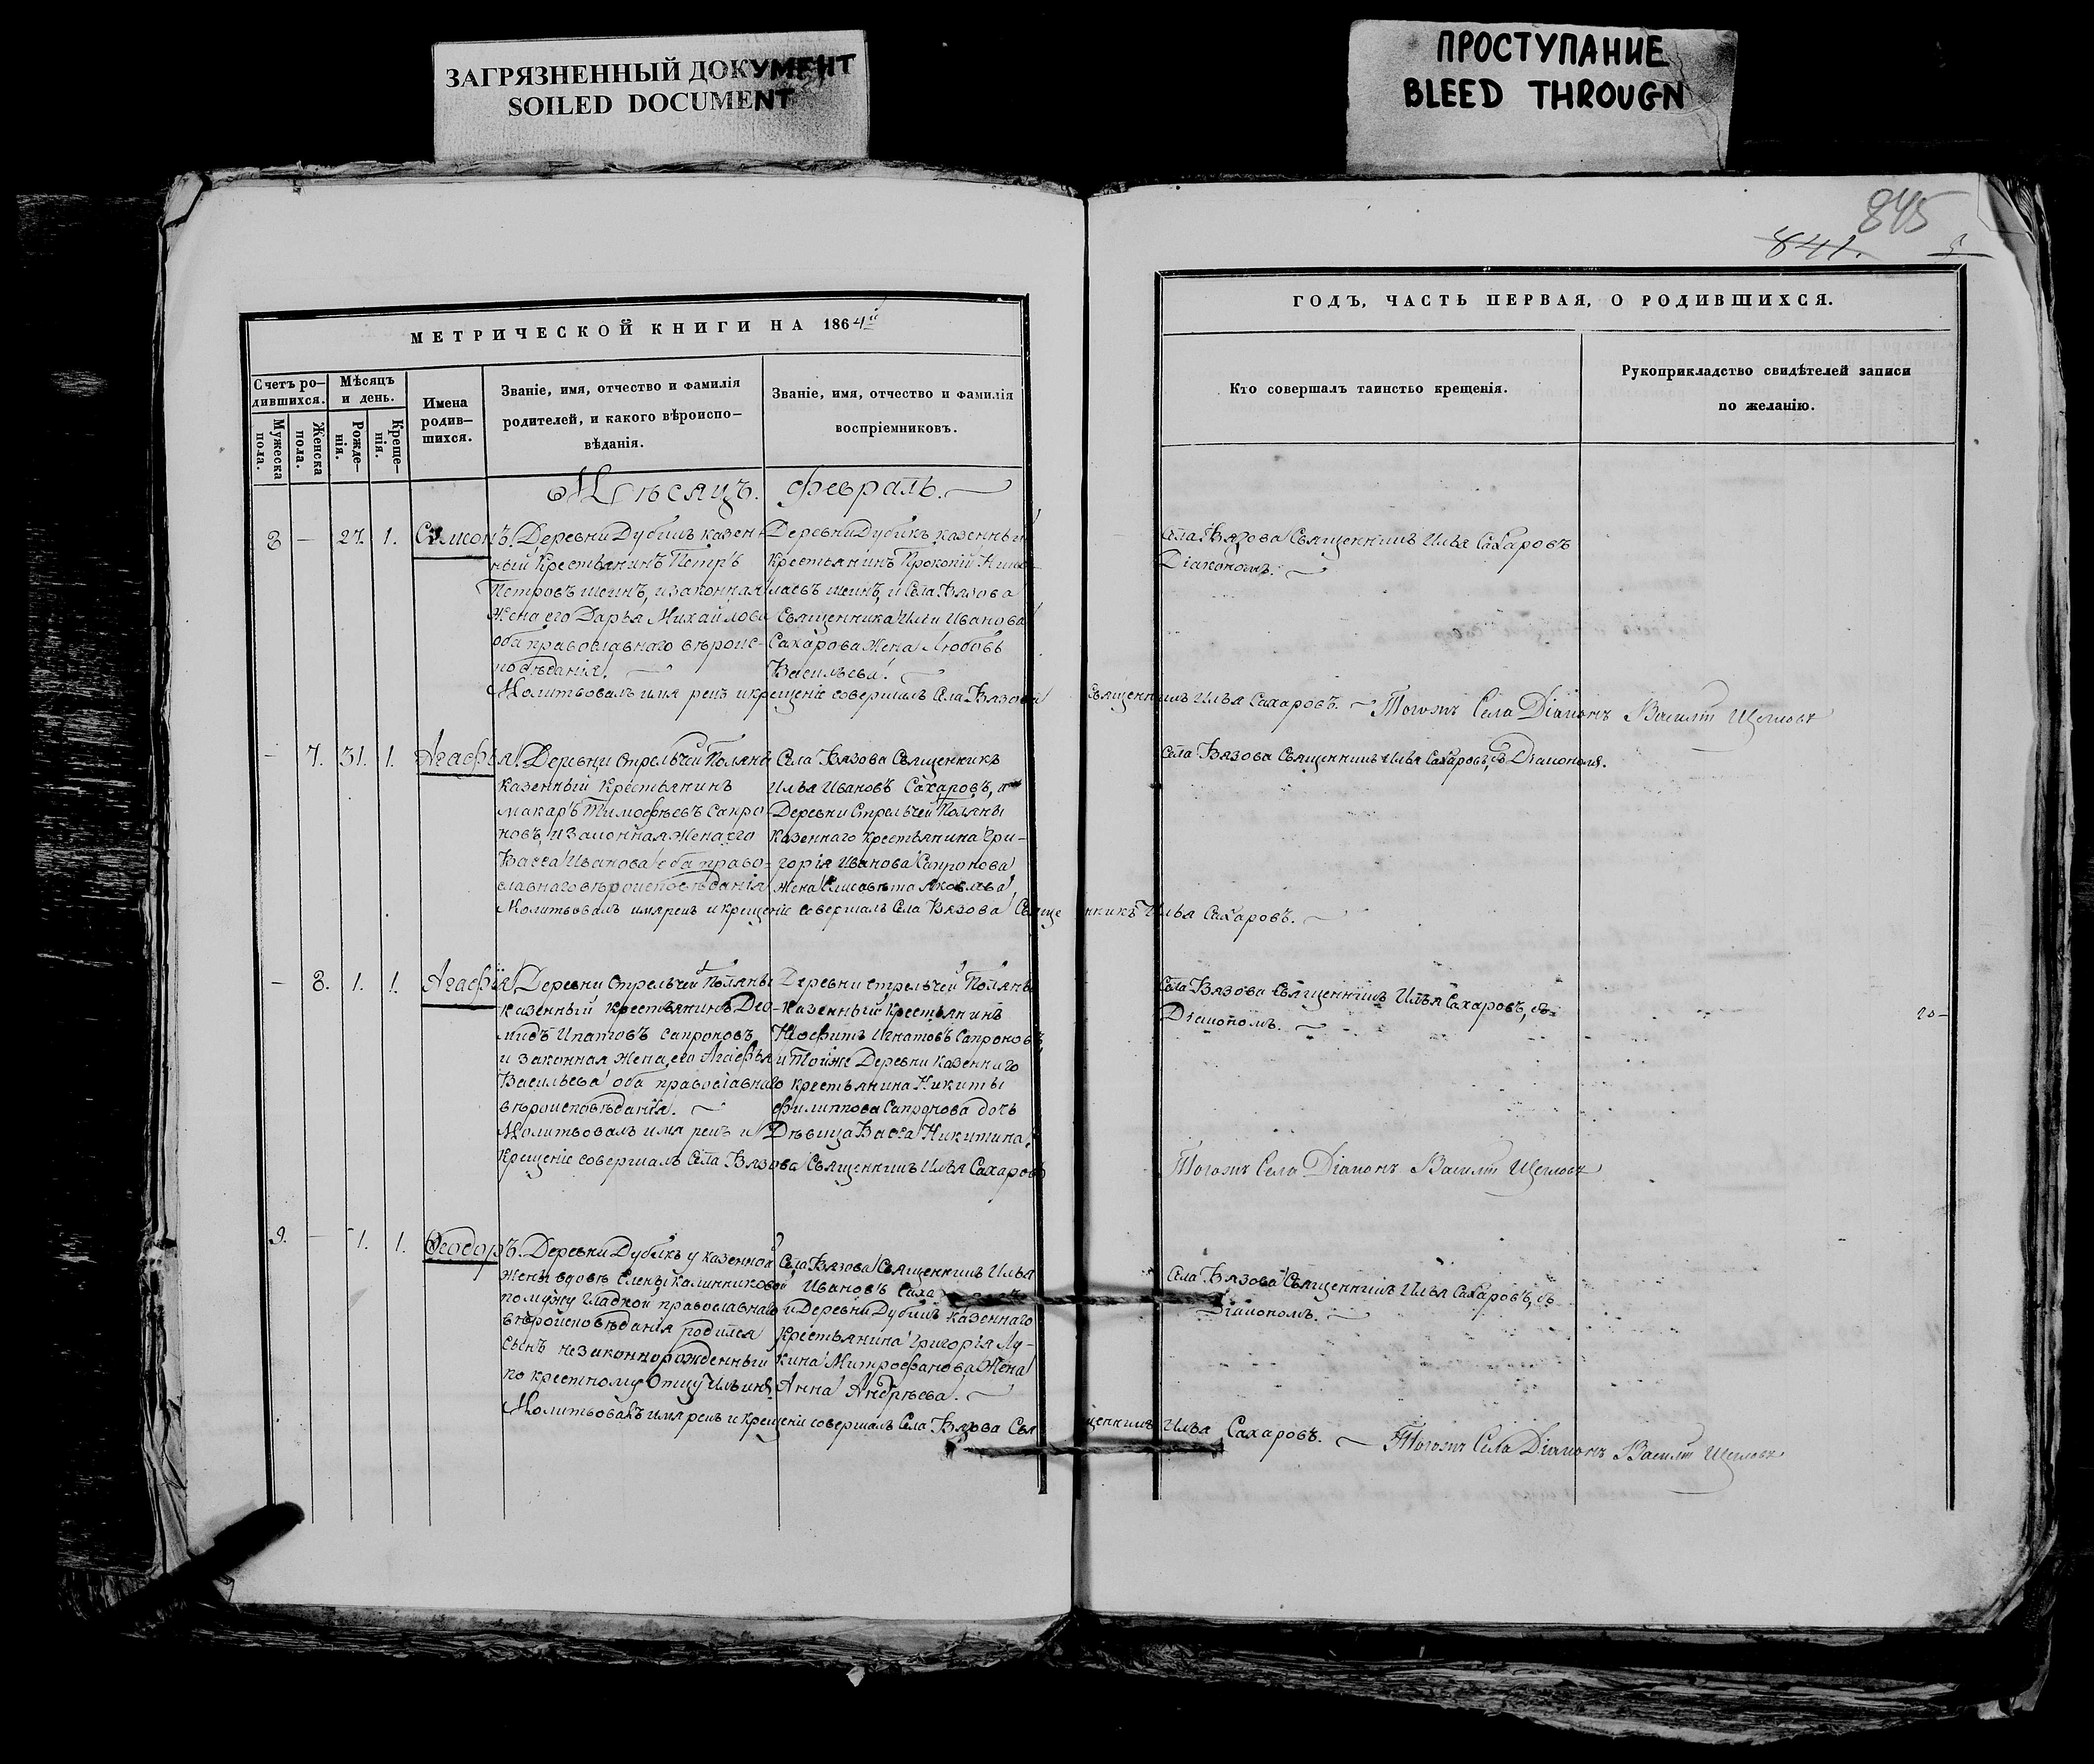 ЗАГРЯЗНЕННЫЙ ДОКУМЕНТ
SOILED DOCUMENT
ПРОСТУПАНИЕ
BLEED THROUGN
845
841.
МЕТРИЧЕСКОЙ КНИГИ НА 1864й
Счетъ ро-
дившихся.
Мѣсяцъ
и день.
Мужеска
пола.
Женска
пола.
Рожде-
нія.
Креще-
нія.
Имена
родив-
шихся.
Званіе, имя, отчество и фамилія
родителей, и какого вѣроиспо-
вѣданія.
Званіе, имя, отчество и фамилія
воспріемниковъ.
Мѣсяцъ. Февраль.
8 — 27. 1. Симеонъ.
Деревни Дубикъ казен-
ный Крестьянинъ Петръ
Петровъ Шеинъ, и законная
Жена его Дарья Михайлова
оба православнаго вѣроис-
повѣданія.
Деревни Дубикъ казенный
Крестьянинъ Прокопій Нико-
лаевъ Шеинъ, и Села Вязова
Священника Ильи Иванова
Сахарова Жена Любовь
Васильева.
Молитвовалъ имя рекъ и крещеніе совершалъ Села Вязова Священникъ Илья Сахаровъ. Тогожъ Села Діаконъ Василій Щегловъ
— 7. 31. 1. Агафья
Деревни Стрельчей Поляны
казенный Крестьянинъ
Макаръ Тимофѣевъ Сапро-
новъ, и Законная Жена его
Васса Иванова оба право-
славнаго вѣроисповѣданія
Села Вязова Священникъ
Илья Ивановъ Сахаровъ, и
Деревни Стрельчей Поляны
Казеннаго Крестьянина Гри-
горія Иванова Сапронова
жена Елисавета Яковлева
Молитвовалъ имя рекъ и крещеніе совершалъ Села Вязова Священникъ Илья Сахаровъ.
— 8. 1. 1. Агафія
Деревни Стрельчей Поляны
казенный крестьянинъ Дио-
мидъ Ипатовъ Сапроновъ,
и законная Жена его Агафья
Васильева оба православнаго
вѣроисповѣданія.
Деревни Стрельчей Поляны
Казенный Крестьянинъ
Игнатовъ Сапроновъ,
и Тойже Деревни Казеннаго
крестьянина Никиты
Филиппова Сапронова дочь
Дѣвица Васса Никитина.
Молитвовалъ имя рекъ и
Крещеніе совершалъ Села Вязова Священникъ Илья Сахаровъ
Тогожъ Села Діаконъ Василій Щегловъ
9. — 1. 1. Ѳеодоръ.
Деревни Дубикъ у казенной
Жены вдовы Елены Калинниковой
по мужу Гладкой православнаго
вѣроисповѣданія родился
сынъ незаконнорожденный
по крестному Отцу Ильинъ.
Села Вязова Священникъ Илья
Ивановъ Саха
и Деревни Дубикъ казеннаго
Крестьянина Григорія Лу-
кина Митрофанова Жена
Анна Андрѣева.
Молитвовалъ имя рекъ и крещеніе совершалъ Села Вязова Священникъ Илья Сахаровъ. Тогожъ Села Діаконъ Василій Щегловъ
ГОДЪ, ЧАСТЬ ПЕРВАЯ, О РОДИВШИХСЯ.
Кто совершалъ таинство крещенія.
Рукоприкладство свидѣтелей записи
по желанію.
Села Вязова Священникъ Илья Сахаровъ
Діакономъ.
Села Вязова Священникъ Илья Сахаровъ, съ Діакономъ.
Села Вязова Священникъ Илья Сахаровъ, съ
Діакономъ.
Села Вязова Священникъ Илья Сахаровъ, съ
Діакономъ.